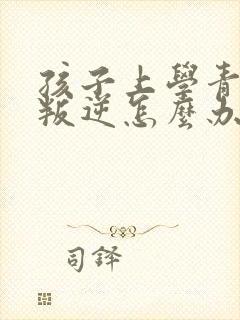 孩子上學青
叛逆怎麼办
司鐸